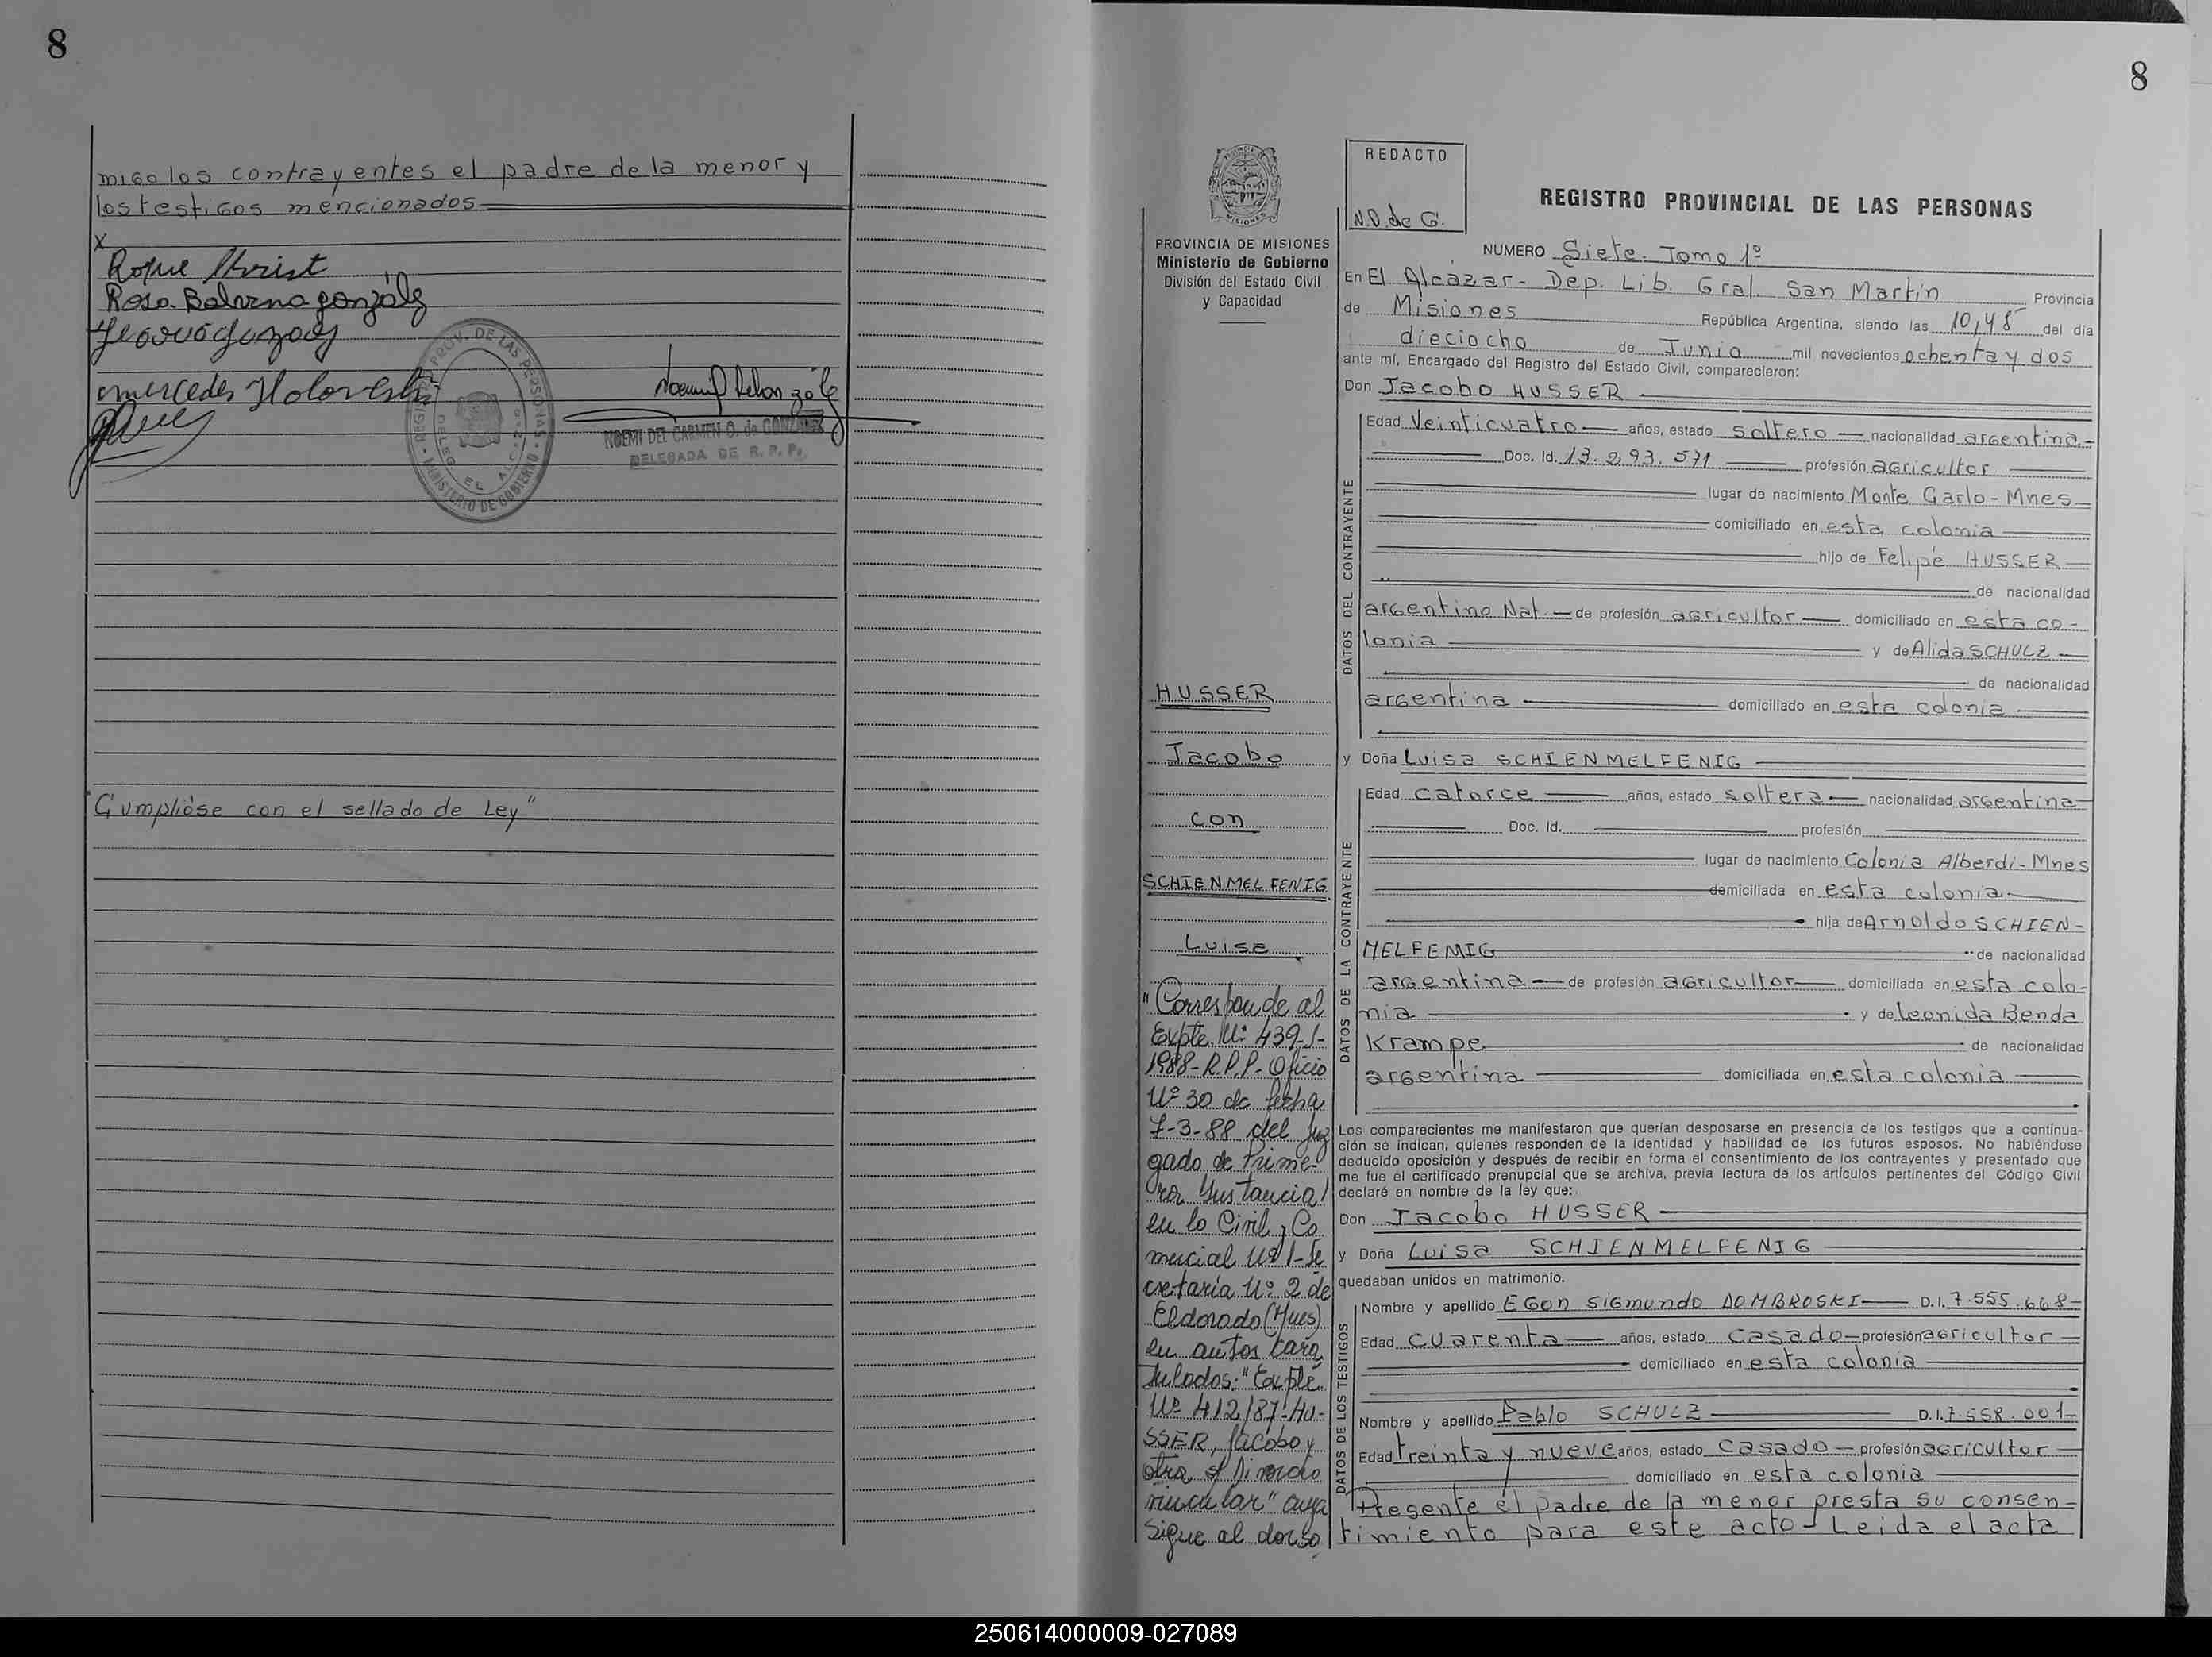 8
migo los contrayentes el padre de la menor y
los testigos mencionados
x
Roque
Rosa Balvena González
Mercedes
NOEMI DEL CARMEN O. de GONZALEZ
DELEGADA DE R. P. P.
REGISTRO PROV. DE LAS PERSONAS
MINISTERIO DE GOBIERNO
Cumplióse con el sellado de Ley"
8
REDACTO
N.O. de G.
REGISTRO PROVINCIAL DE LAS PERSONAS
PROVINCIA DE MISIONES
Ministerio de Gobierno
División del Estado Civil
y Capacidad
HUSSER
Jacobo
con
SCHIENMELFENIG
Luisa
"Corresponde al
Expte. Nº 439-J-
1988-R.P.P. Oficio
Nº 30 de fecha
7-3-88 del Juz
gado de Prime
ra Instancia
en lo Civil y Co
mercial Nº 1-Se
cretaría Nº 2 de
Eldorado (Mnes)
en autos cara
tulados: "Expte.
Nº 412/87-HU-
SSER, Jacobo y
otra s/ Divorcio
vincular" cuya
sigue al dorso
NUMERO Siete. Tomo 1º
En El Alcázar - Dep. Lib. Gral. San Martín Provincia
de Misiones República Argentina, siendo las 10,45 del día
dieciocho de Junio mil novecientos ochenta y dos
ante mí, Encargado del Registro del Estado Civil, comparecieron:
Don Jacobo HUSSER
DATOS DEL CONTRAYENTE
Edad Veinticuatro años, estado soltero nacionalidad argentina
Doc. Id. 13.293.571 profesión agricultor
lugar de nacimiento Monte Carlo - Mnes
domiciliado en esta colonia
hijo de Felipe HUSSER
de nacionalidad
argentino Nat. de profesión agricultor domiciliado en esta co-
lonia y de Alida SCHULZ
de nacionalidad
argentina domiciliado en esta colonia
y Doña Luisa SCHIENMELFENIG
DATOS DE LA CONTRAYENTE
Edad catorce años, estado soltera nacionalidad argentina
Doc. Id. profesión
lugar de nacimiento Colonia Alberdi - Mnes
domiciliada en esta colonia
hija de Arnoldo SCHIEN-
MELFEMIG de nacionalidad
argentina de profesión agricultor domiciliada en esta colo-
nia y de Leonida Benda
Krampe de nacionalidad
argentina domiciliada en esta colonia
Los comparecientes me manifestaron que querían desposarse en presencia de los testigos que a continua-
ción se indican, quienes responden de la identidad y habilidad de los futuros esposos. No habiéndose
deducido oposición y después de recibir en forma el consentimiento de los contrayentes y presentado que
me fue el certificado prenupcial que se archiva, previa lectura de los artículos pertinentes del Código Civil
declaré en nombre de la ley que:
Don Jacobo HUSSER
y Doña Luisa SCHIENMELFENIG
quedaban unidos en matrimonio.
DATOS DE LOS TESTIGOS
Nombre y apellido Egon Sigmundo DOMBROSKI D.I. 7.555.668
Edad cuarenta años, estado casado profesión agricultor
domiciliado en esta colonia
Nombre y apellido Pablo SCHULZ D.I. 7.558.001
Edad treinta y nueve años, estado casado profesión agricultor
domiciliado en esta colonia
Presente el padre de la menor presta su consen-
timiento para este acto - Leida el acta
250614000009-027089